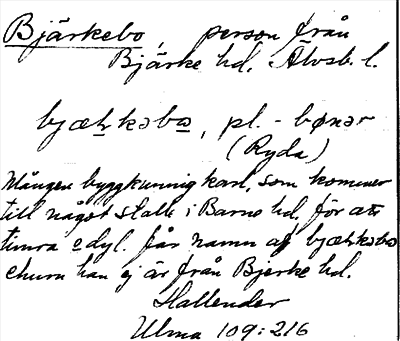 Bjärkebo, person från
Bjärke hd. Älvsb. l.
bjæṟkəbo, pl. -bønər
(Ryda)
Mången byggkunnig karl, som kommer
till något ställe i Barne hd, för att
timra e dyl. får namn af bjæṟkəbo
ehuru han ej är från Bjerke hd.
Hallender
Ulma 109:216